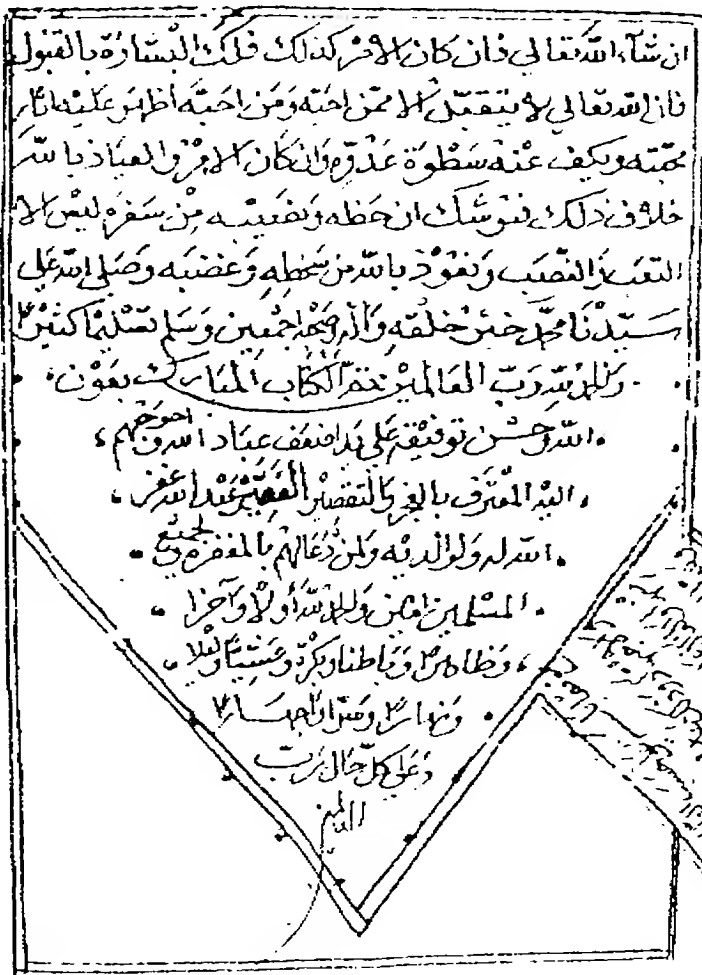 ان شآء الله تعالي فان كان الامر كذلك فلك البشارة بالقبول
فان الله تعالي لا يتقبل الا ممن احبه ومن احبه أظهر عليه اثار
محبته ويكف عنه سطوة عدوه وان كان الامر والعياذ بالله
خلاف ذلك فنوشك ان حظه ونصيبه من سفره ليس الا
التعب والنصب ونعوذ بالله من سخطه وغضبه وصلي الله علي
سيدنا محمد خير خلقه وآله وصحبه اجمعين وسلم تسليما كثيرا
والحمد لله رب العالمين تم الكتاب المبارك بعون
الله وحسن توفيقه علي يد اضعف عباد الله واحوجهم
اليه المعترف بالعجز والتقصير الفقير عند الله غفر
الله له ولوالديه ولمن دعا لهم بالمغفرة ولجميع
المسلمين امين والحمد لله أولا وآخرا
وظاهرا وباطنا وبكرة وعشيا وليلا
ونهارا وسرا وجهارا
وعلى كل حال رب